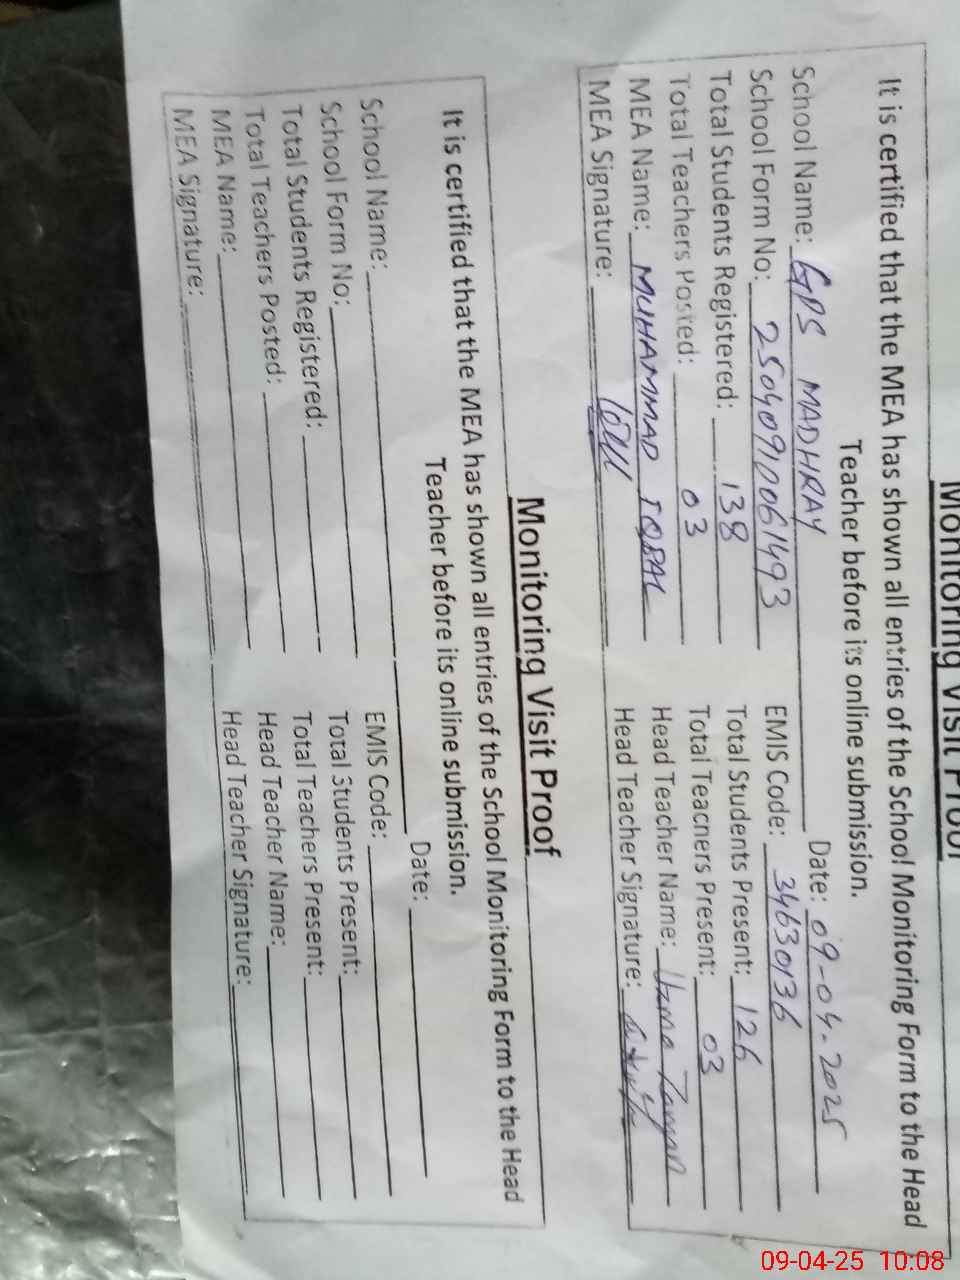 Monitoring Visit Proof
It is certified that the MEA has shown all entries of the School Monitoring Form to the Head
Teacher before its online submission.
School Name: GPS MADHRAY Date: 09-04-2025
School Form No: 25040910061493 EMIS Code: 34630136
Total Students Registered: 138 Total Students Present: 126
Total Teachers Posted: 03 Total Teachers Present: 03
MEA Name: MUHAMMAD IQBAL Head Teacher Name: Uzma
MEA Signature: Head Teacher Signature:
Monitoring Visit Proof
It is certified that the MEA has shown all entries of the School Monitoring Form to the Head
Teacher before its online submission.
School Name: Date:
School Form No: EMIS Code:
Total Students Registered: Total Students Present:
Total Teachers Posted: Total Teachers Present:
MEA Name: Head Teacher Name:
MEA Signature: Head Teacher Signature:
09-04-25 10:08